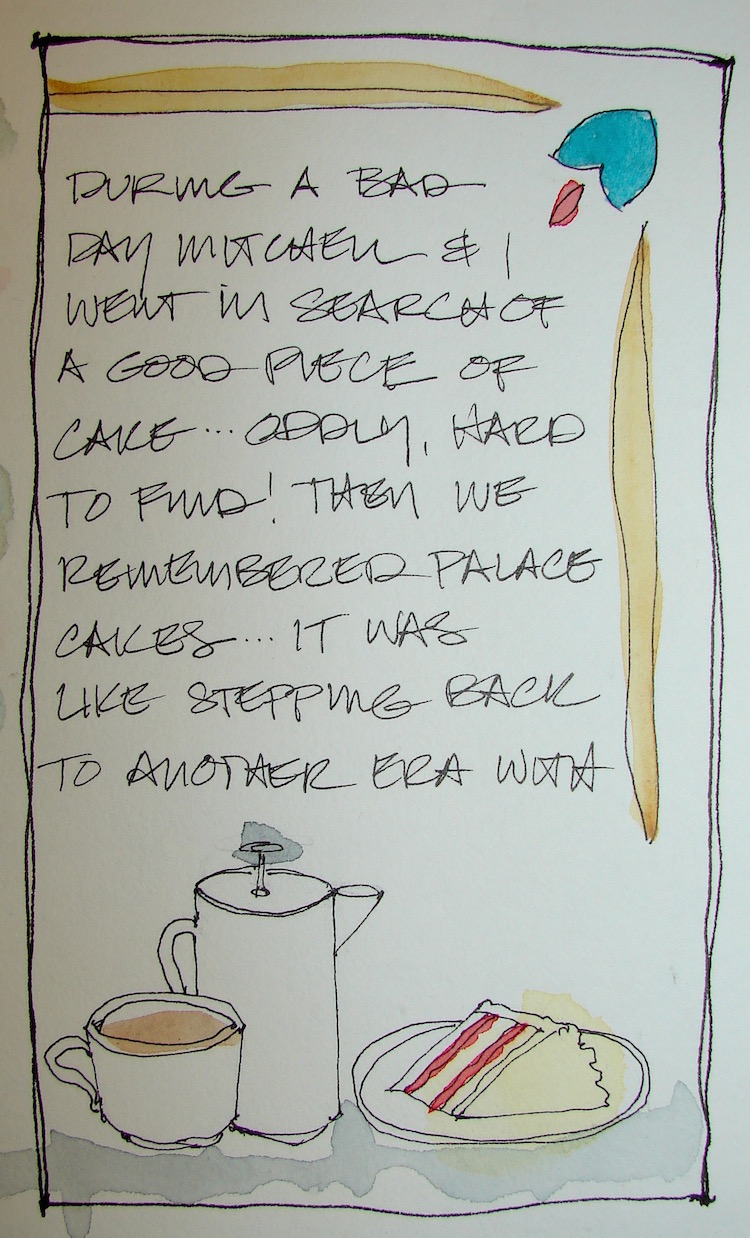 DURING A BAD
DAY MITCHELL & I
WENT IN SEARCH OF
A GOOD PIECE OF
CAKE... ODDLY, HARD
TO FIND! THEN WE
REMEMBERED PALACE
CAKES... IT WAS
LIKE STEPPING BACK
TO ANOTHER ERA WITH